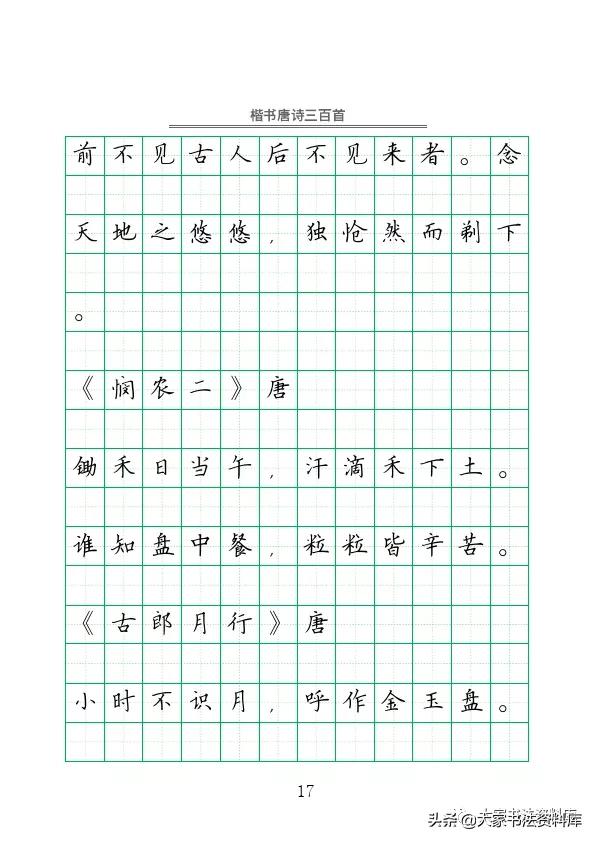 楷书唐诗三百首
前不见古人后不见来者。念
天地之悠悠，独怆然而剃下
。
《悯农二》唐
锄禾日当午，汗滴禾下土。
谁知盘中餐，粒粒皆辛苦。
《古郎月行》唐
小时不识月，呼作金玉盘。
17
大家书法资料库
头条@大家书法资料库